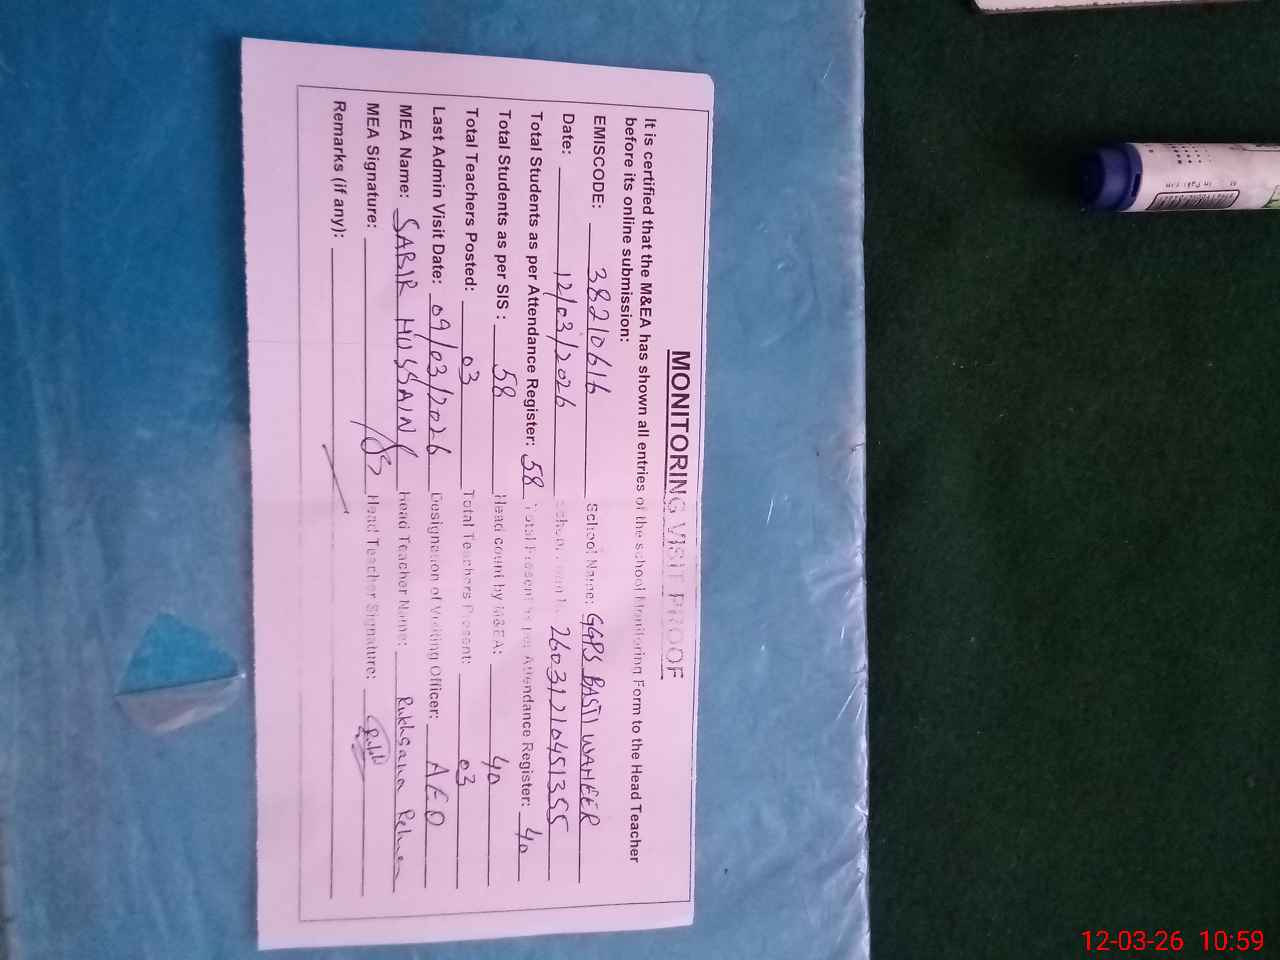 MONITORING VISIT PROOF
It is certified that the M&EA has shown all entries of the school Monitoring Form to the Head Teacher
before its online submission:
EMISCODE: 38210616 School Name: GGPS BASTI WAHEER
Date: 12/03/2026 260312104513SS
Total Students as per Attendance Register: 58 Total Present as per Attendance Register: 40
Total Students as per SIS : 58 Head count by M&EA: 40
Total Teachers Posted: 03 Total Teachers Present: 03
Last Admin Visit Date: 09/03/2026 Designation of Visiting Officer: AEO
MEA Name: SABIR HUSSAIN Head Teacher Name: Rukhsana
MEA Signature: Head Teacher Signature:
Remarks (if any):
12-03-26 10:59